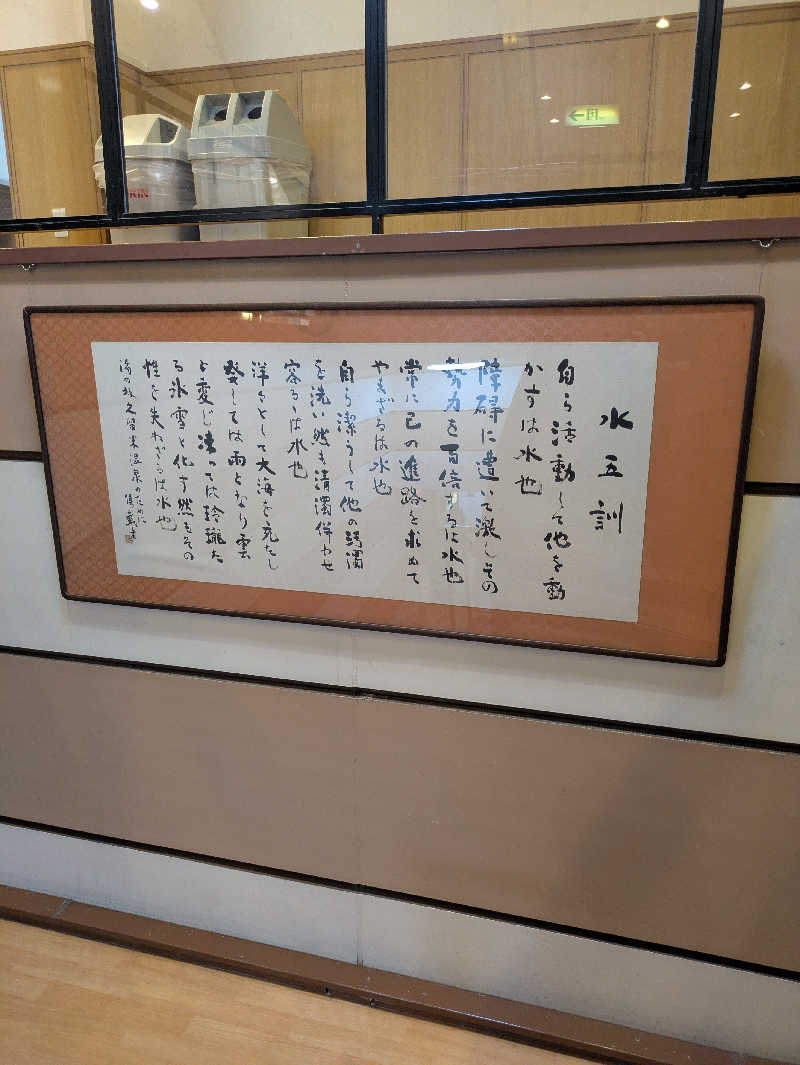 水五訓
自ら活動して他を動
かすは水也
障碍に遭いて激しその
勢力を百倍するは水也
常に己の進路を求めて
やまざるは水也
自ら潔うして他の汚濁
を洗い然も清濁併せ
容るゝは水也
洋々として大海を充たし
発しては雨となり雲
と変じ凍っては玲瓏た
る氷雪と化す然もその
性を失わざるは水也
湯の坂久留米温泉のために